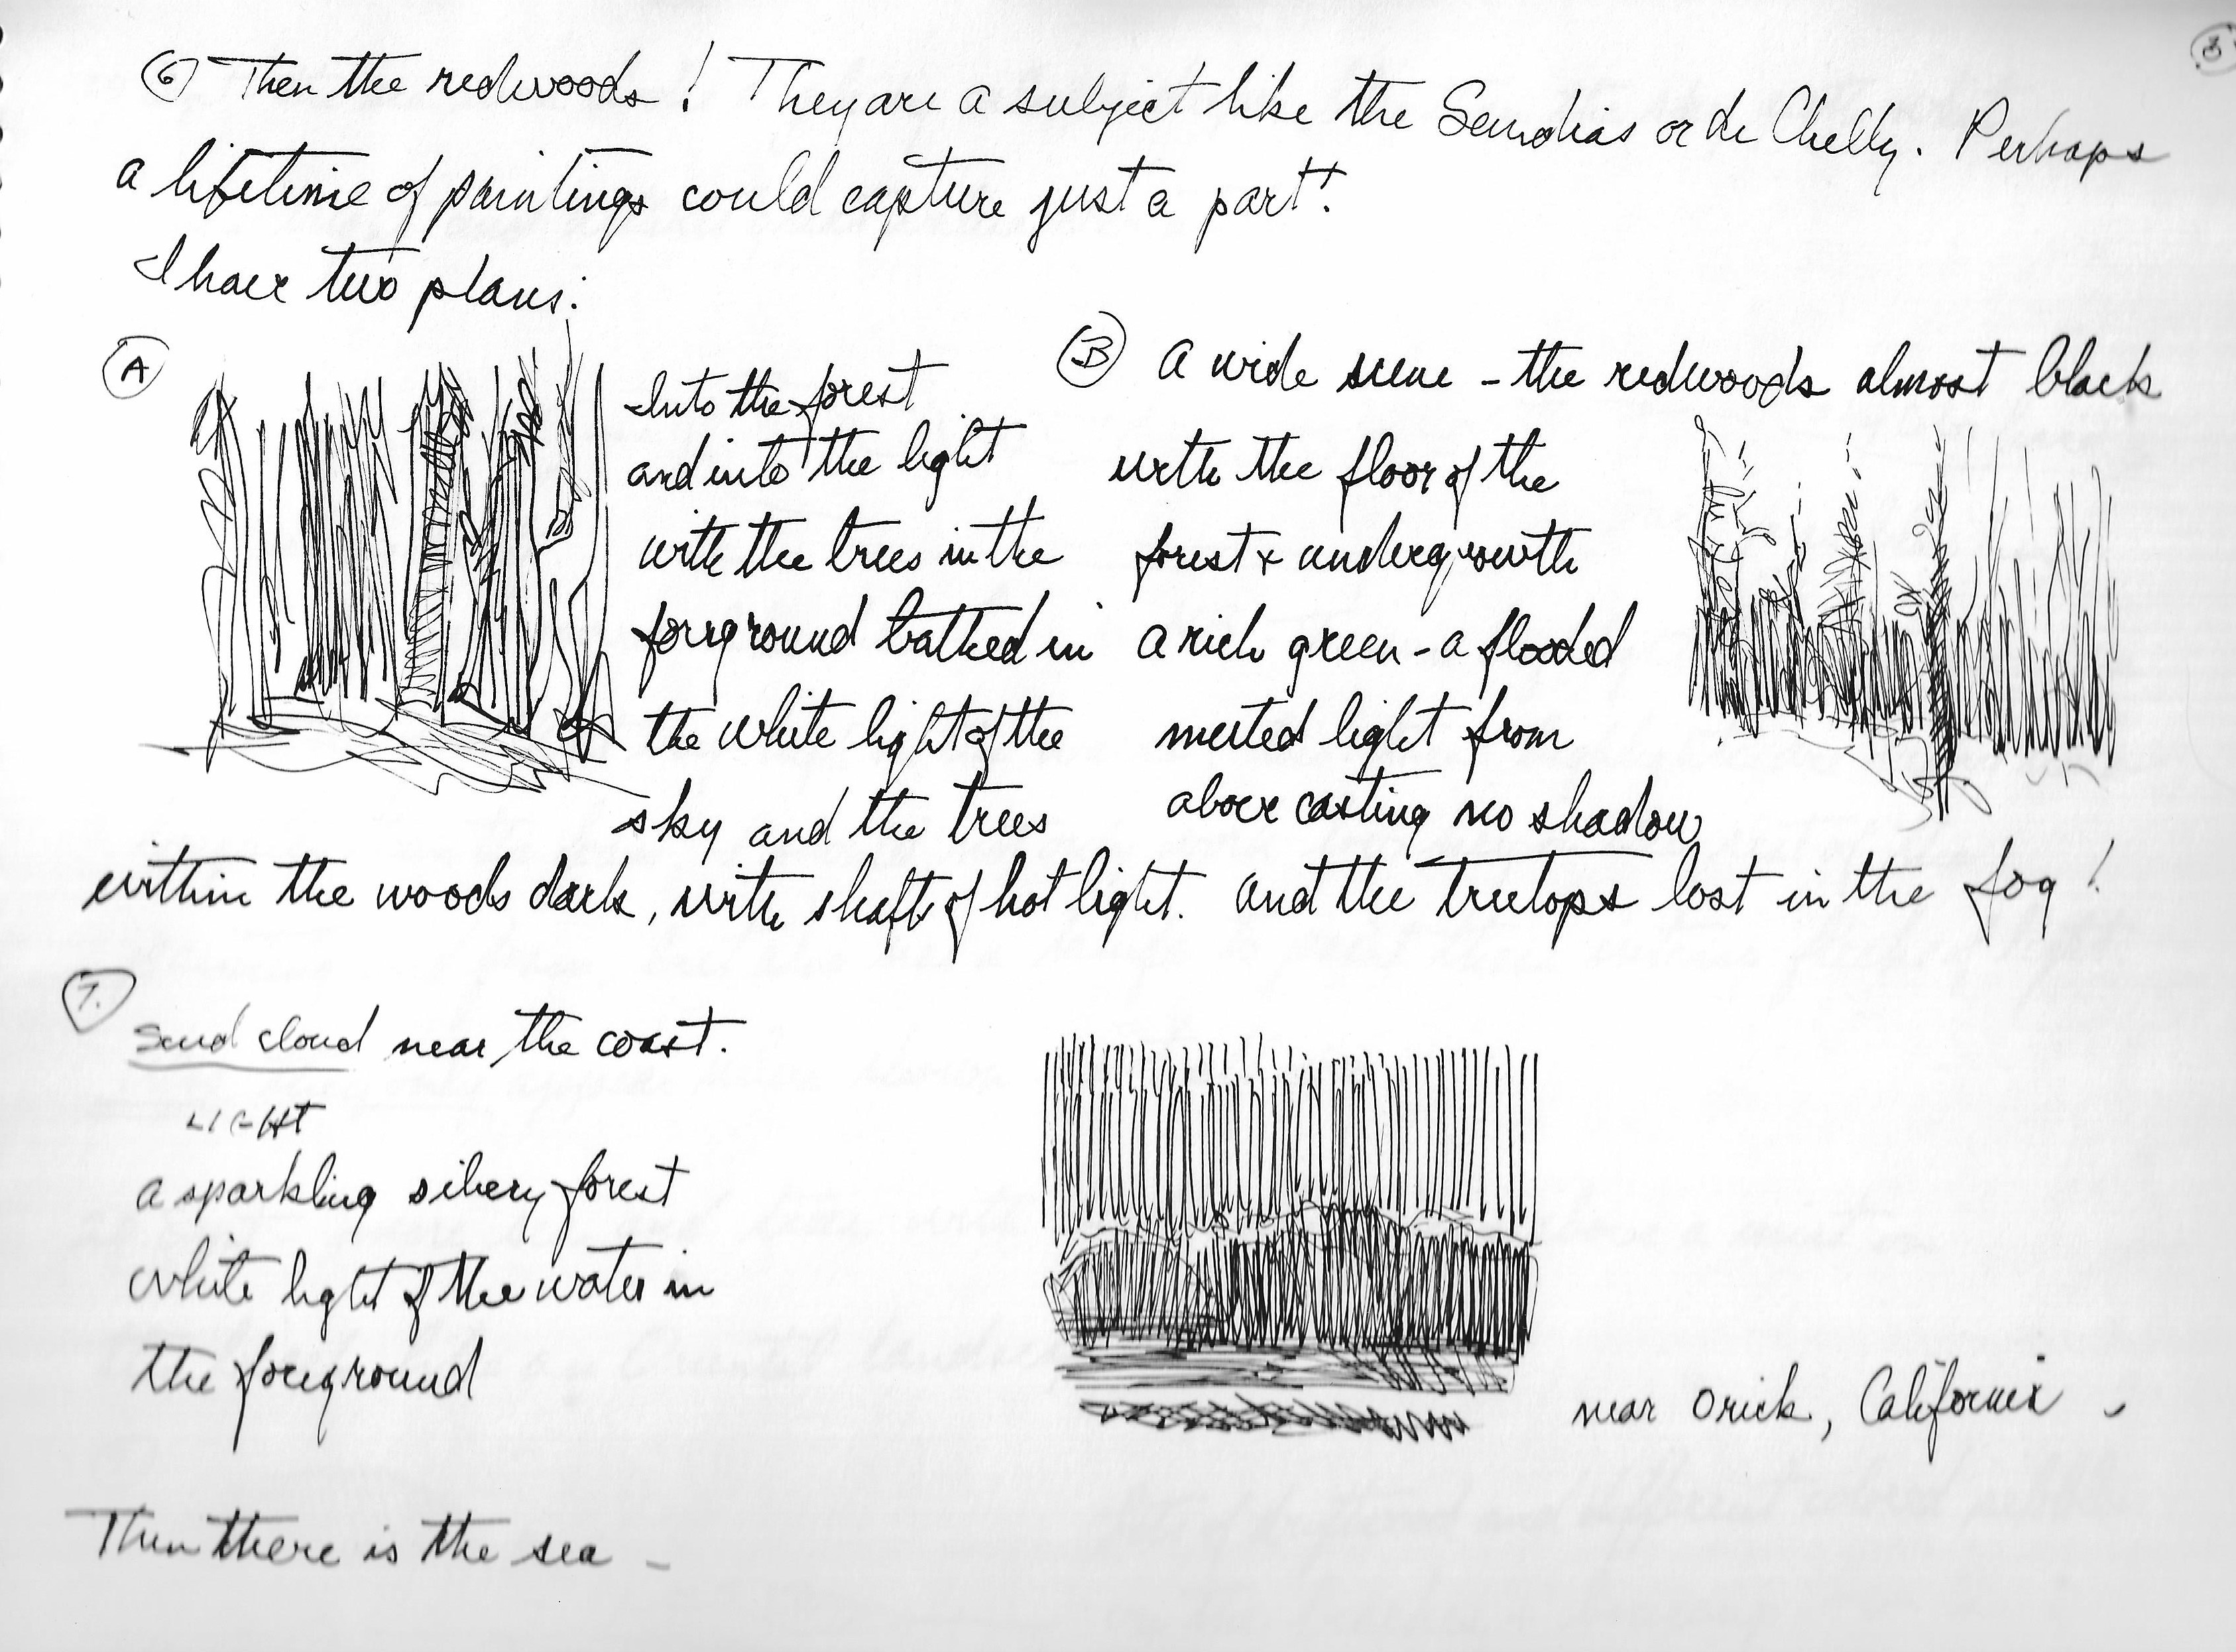 3
6 Then the redwoods! They are a subject like the Sandias or de Chelly. Perhaps
a lifetime of paintings could capture just a part!
I have two plans:
A
Into the forest
and into the light
with the trees in the
foreground bathed in
the white light of the
sky and the trees
within the woods dark, with shafts of hot light.
B a wide scene - the redwoods almost black
with the floor of the
forest & undergrowth
a rich green - a flooded
muted light from
above casting no shadow
and the treetops lost in the fog!
7.
cloud near the coast.
LIGHT
a sparkling silvery forest
white light of the water in
the foreground
near Orick, California -
Then there is the sea -